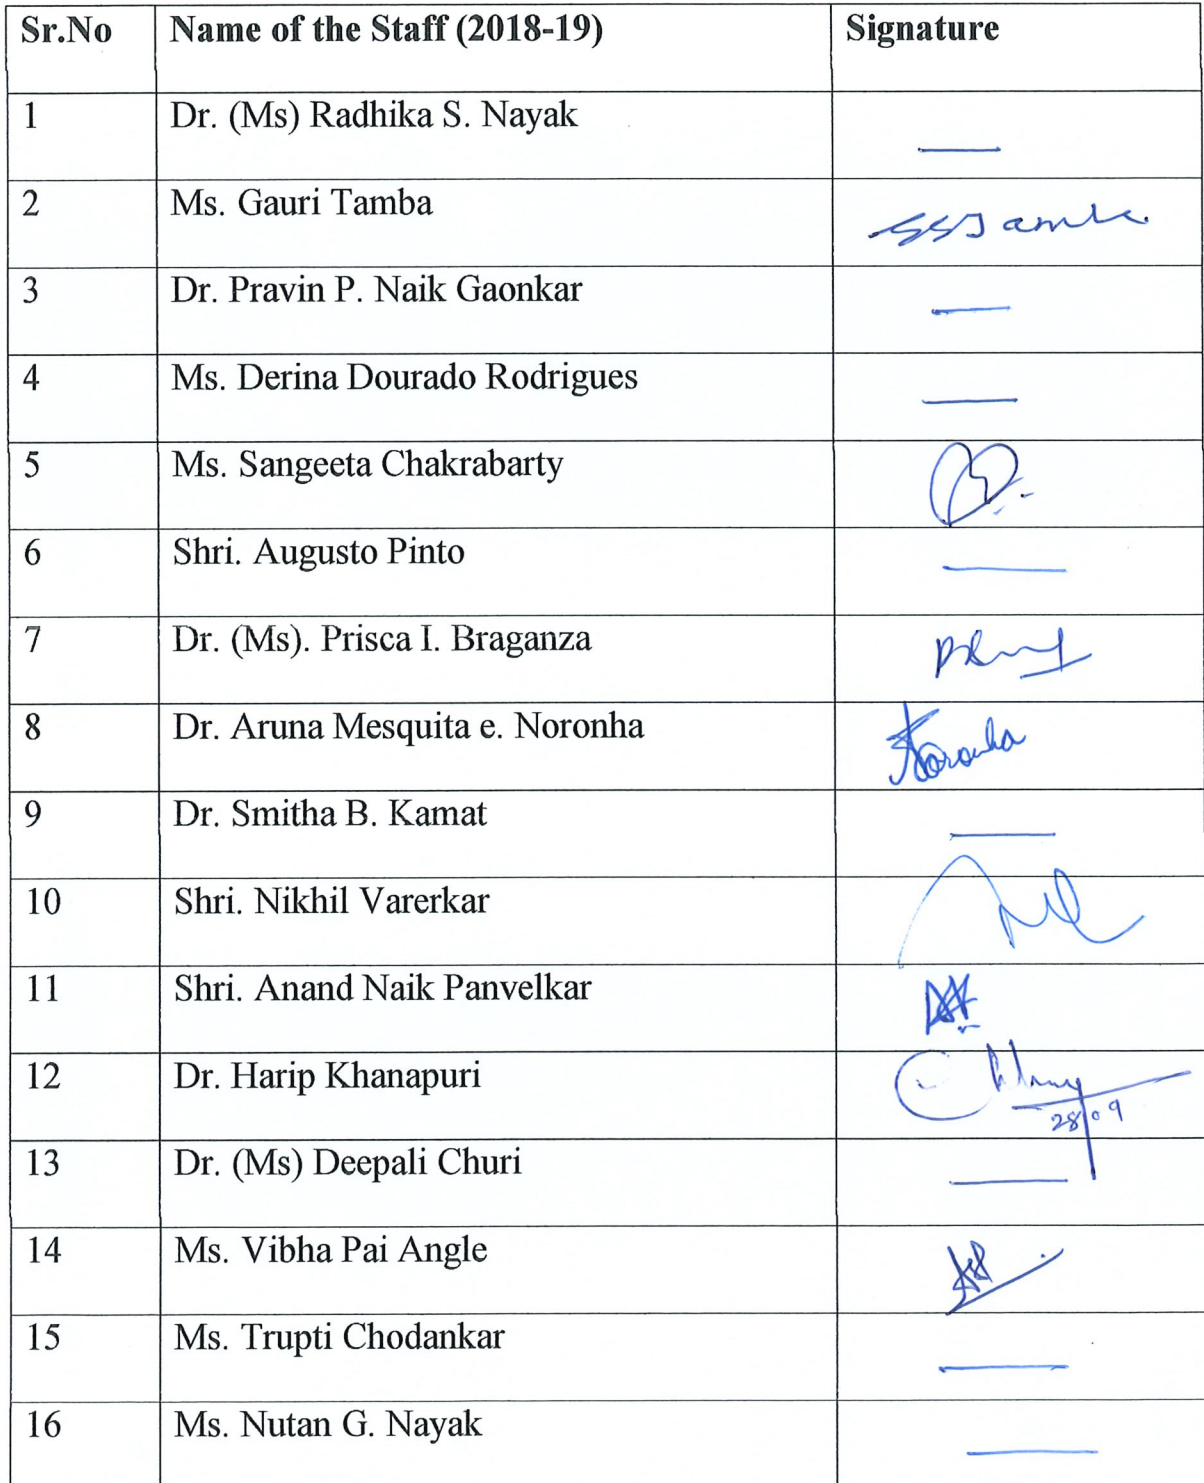 Sr.No Name of the Staff (2018-19) Signature
1 Dr. (Ms) Radhika S. Nayak —
2 Ms. Gauri Tamba
3 Dr. Pravin P. Naik Gaonkar —
4 Ms. Derina Dourado Rodrigues —
5 Ms. Sangeeta Chakrabarty
6 Shri. Augusto Pinto —
7 Dr. (Ms). Prisca I. Braganza
8 Dr. Aruna Mesquita e. Noronha Noronha
9 Dr. Smitha B. Kamat —
10 Shri. Nikhil Varerkar
11 Shri. Anand Naik Panvelkar
12 Dr. Harip Khanapuri
28/09
13 Dr. (Ms) Deepali Churi —
14 Ms. Vibha Pai Angle
15 Ms. Trupti Chodankar —
16 Ms. Nutan G. Nayak —